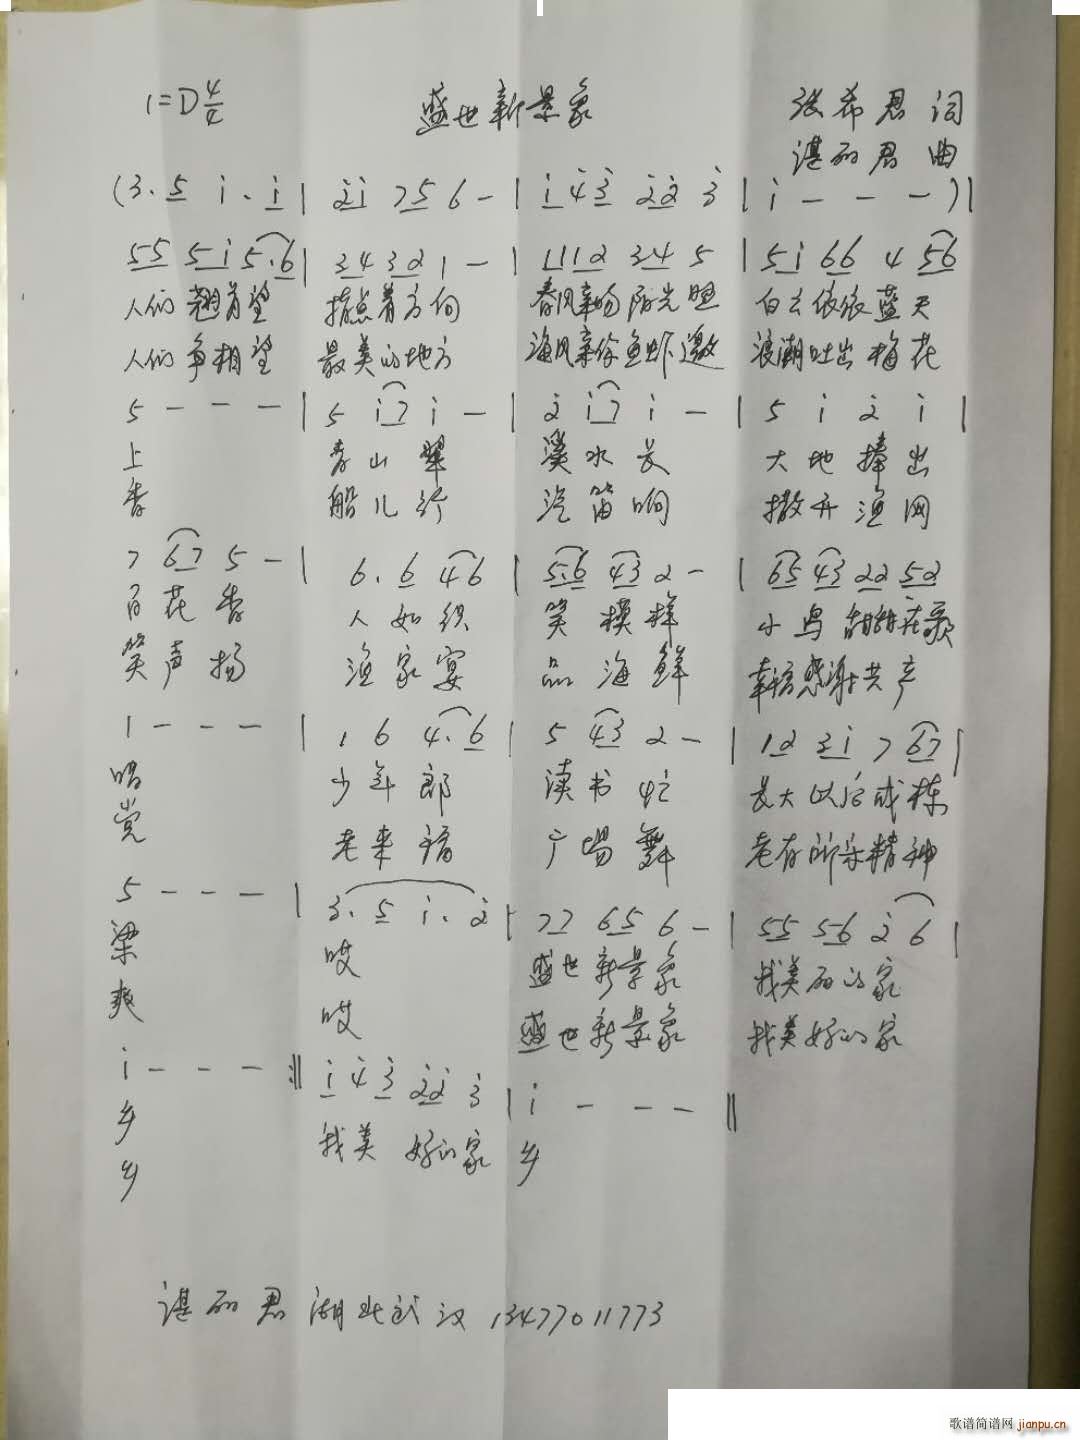 1=D 4/4 盛世新景象 张希君 词
谌丽君 曲
(3. 5 i. i | 2i 75 6 - | i 4 3 22 3 | i - - - ) |
55 5i 5.6 | 34 32 1 - | 1112 34 5 | 5i 66 4 56
人们翘首望 指点着方向 春风和畅阳光照 白云依依蓝天
人们争相望 最美的地方 海风亲你鱼虾邀 浪潮吐出梅花
5 - - - | 5 i7 i - | 2 i7 i - | 5 i 2 i |
上 青山翠 溪水长 大地捧出
香 船儿行 汽笛响 撒开渔网
7 67 5 - | 6. 6 46 | 5.6 43 2 - | 65 43 22 52
百花香 人如织 笑模样 小鸟甜甜在歌
笑声扬 渔家宴 品海鲜 幸福感谢共产
1 - - - | 1 6 4.6 | 5 43 2 - | 12 3i 7 67 |
唱 少年郎 读书忙 长大以后成栋
党 老来福 广场舞 老有所乐精神
5 - - - | 3. 5 i. 2 | 77 65 6 - | 55 56 2 6 |
梁 哎 盛世新景象 我美丽的家
爽 哎 盛世新景象 我美好的家
i - - - :‖ i 4 3 22 3 | i - - - ‖
乡 我美 好的家 乡
乡
谌丽君 湖北武汉 13477011773
歌谱简谱网 jianpu.cn